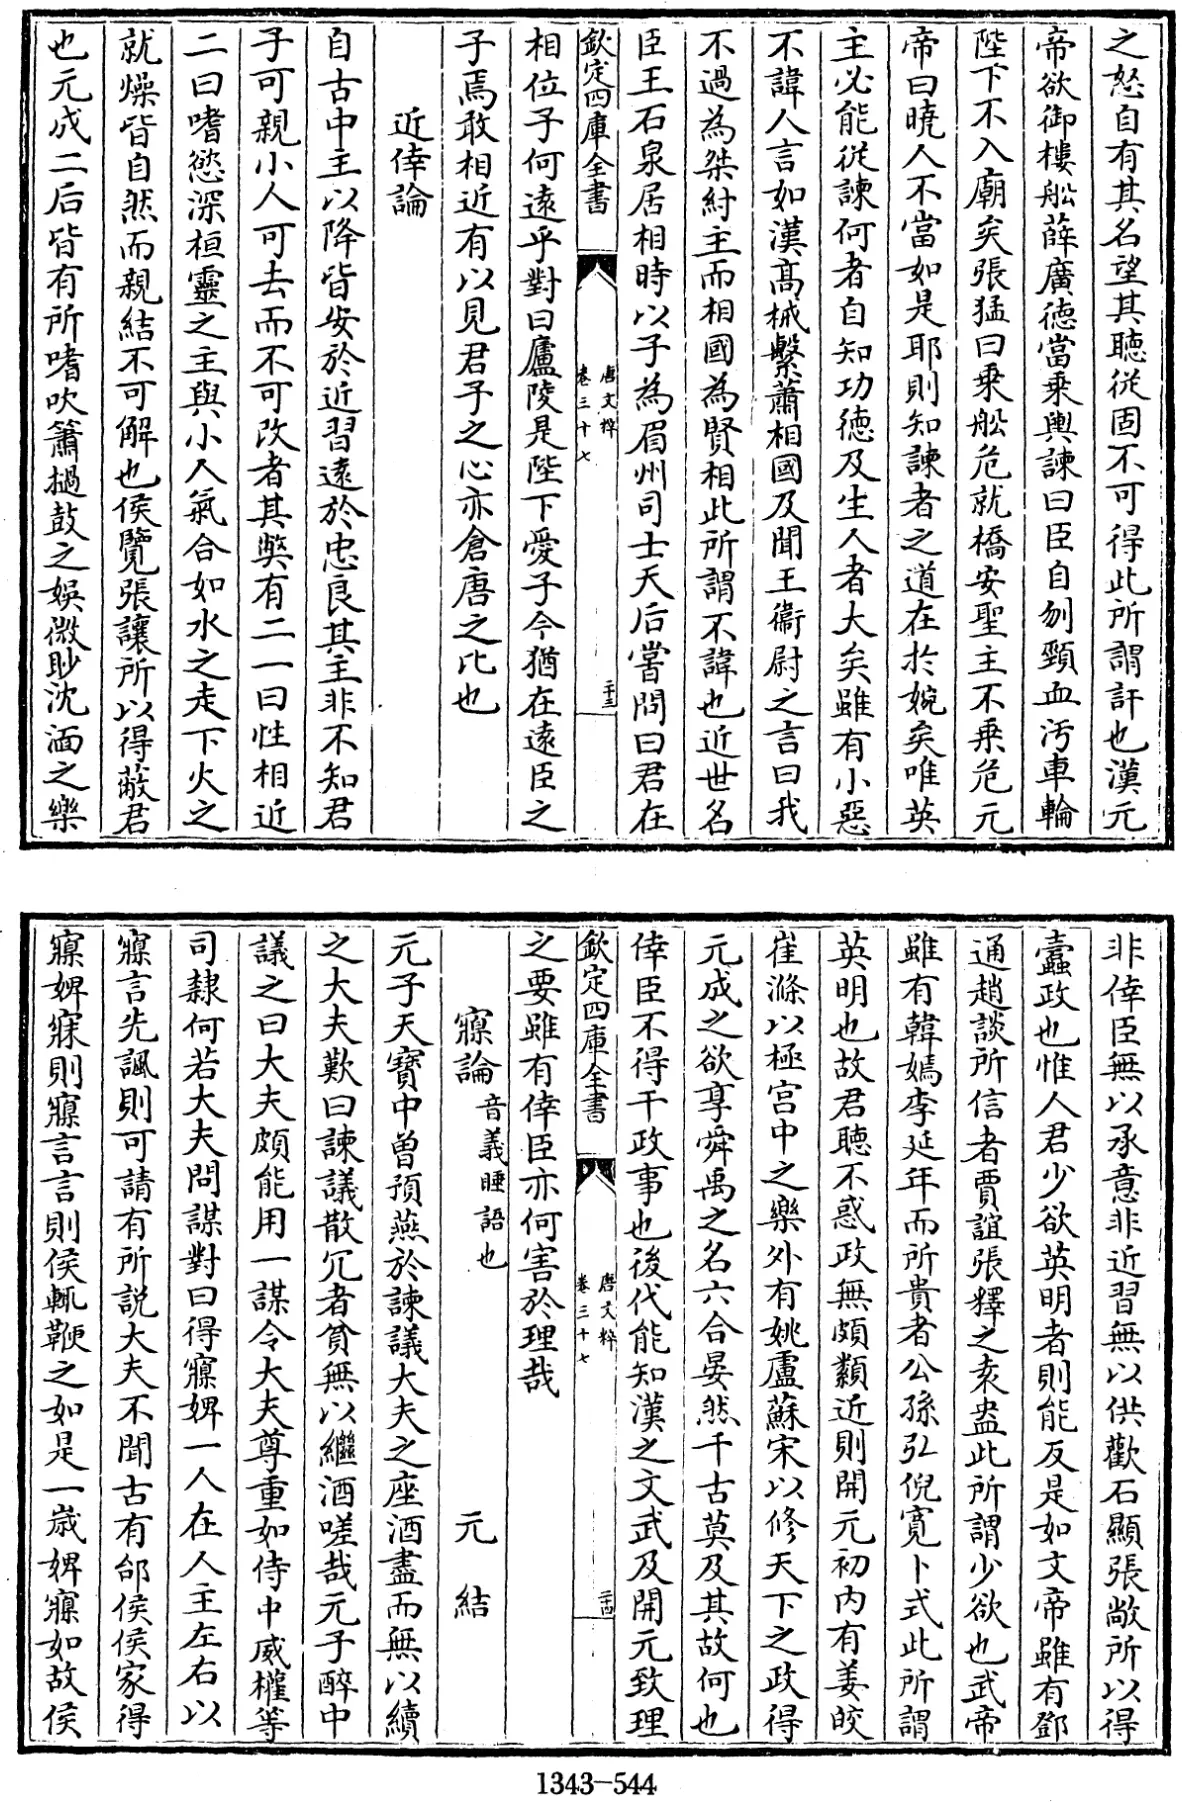 之怒自有其名望其聽從固不可得此所謂訐也漢元
帝欲御樓船薛廣德當乘輿諫曰臣自刎頸血汚車輪
陛下不入廟矣張猛曰乘船危就橋安聖主不乘危元
帝曰曉人不當如是耶則知諫者之道在於婉矣唯英
主必能從諫何者自知功德及生人者大矣雖有小惡
不諱人言如漢髙械繫蕭相國及聞王衞尉之言曰我
不過為桀紂主而相國為賢相此所謂不諱也近世名
臣王石泉居相時以子為眉州司士天后嘗問曰君在
欽定四庫全書
唐文粹
卷三十七
二十三
相位子何遠乎對曰廬陵是陛下愛子今猶在遠臣之
子焉敢相近有以見君子之心亦倉唐之比也
近倖論
自古中主以降皆安於近習遠於忠良其主非不知君
子可親小人可去而不可改者其弊有二一曰性相近
二曰嗜慾深桓靈之主與小人氣合如水之走下火之
就燥皆自然而親結不可解也侯覽張讓所以得蔽君
也元成二后皆有所嗜吹簫撾鼓之娱微眇沈湎之樂
非倖臣無以承意非近習無以供歡石顯張敞所以得
蠧政也惟人君少欲英明者則能反是如文帝雖有鄧
通趙談所信者賈誼張釋之袁盎此所謂少欲也武帝
雖有韓嫣李延年而所貴者公孫弘倪寛卜式此所謂
英明也故君聽不惑政無頗纇近則開元初内有姜皎
崔滌以極宫中之樂外有姚盧蘇宋以修天下之政得
元成之欲享舜禹之名六合晏然千古莫及其故何也
倖臣不得干政事也後代能知漢之文武及開元致理
欽定四庫全書
唐文粹
卷三十七
二十四
之要雖有倖臣亦何害於理哉
寱論 音義睡語也 元結
元子天寶中曽預燕於諫議大夫之座酒盡而無以續
之大夫歎曰諫議散冗者貧無以繼酒嗟哉元子醉中
議之曰大夫頗能用一謀令大夫尊重如侍中威權等
司隸何若大夫問謀對曰得寱婢一人在人主左右以
寱言先諷則可請有所説大夫不聞古有郃侯侯家得
寱婢寐則寱言言則侯輒鞭之如是一歳婢寱如故侯
1343-544